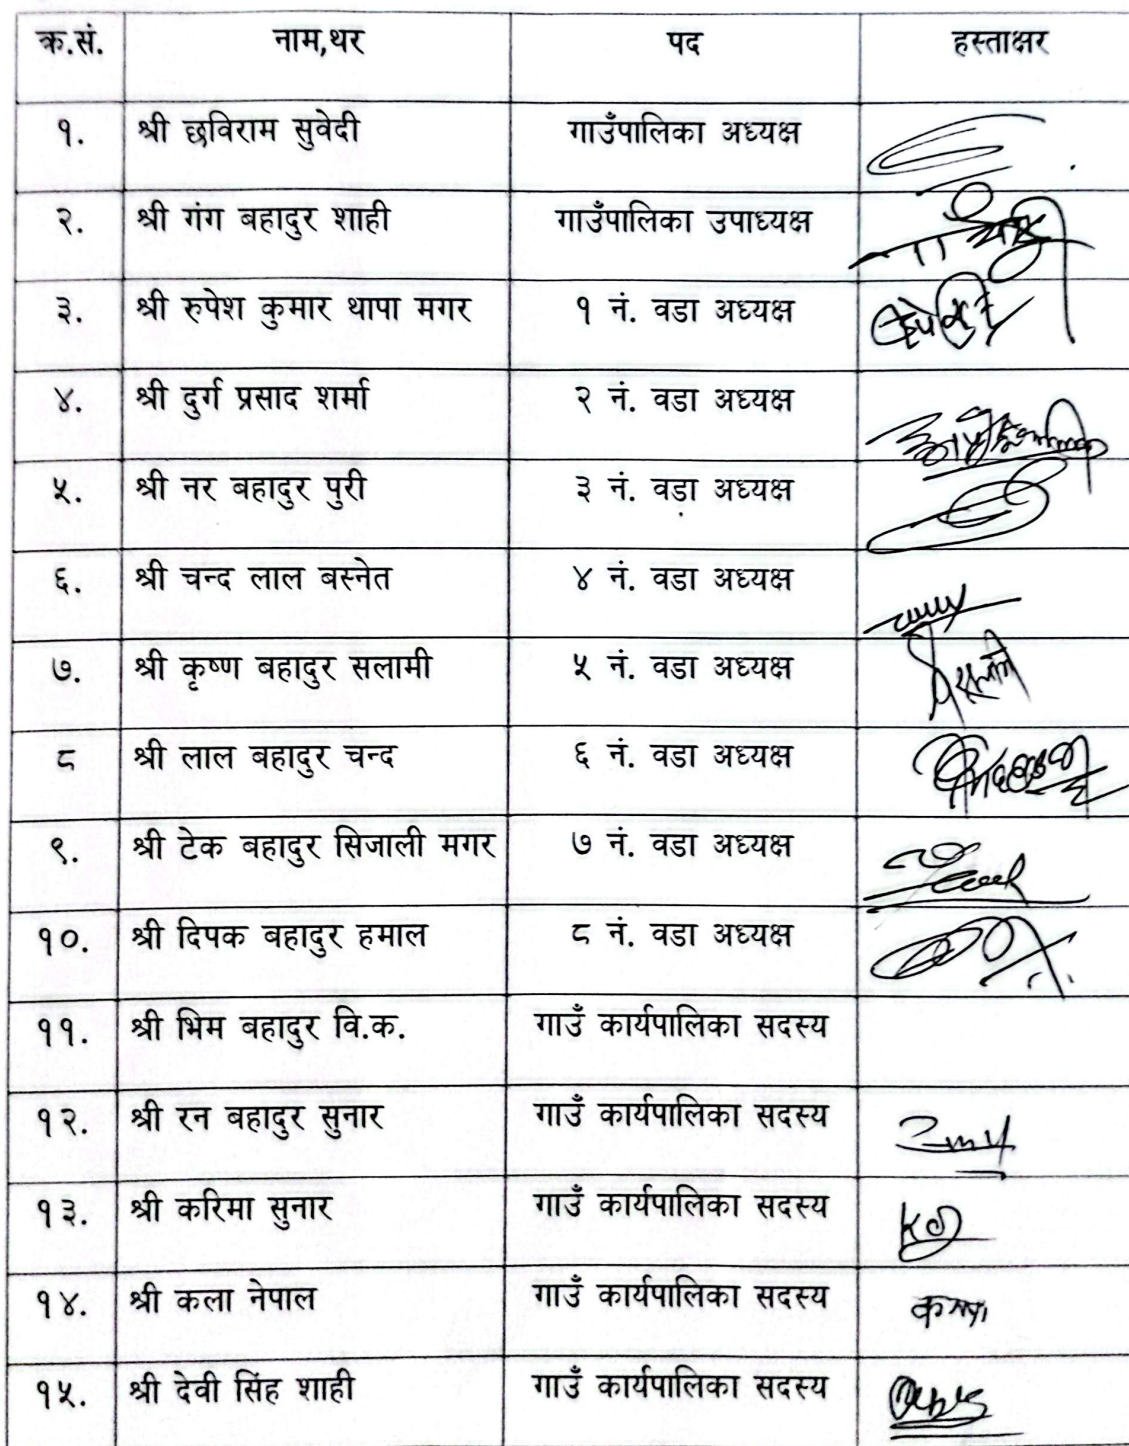 क्र.सं. नाम,थर पद हस्ताक्षर
१. श्री छविराम सुवेदी गाउँपालिका अध्यक्ष
२. श्री गंग बहादुर शाही गाउँपालिका उपाध्यक्ष
३. श्री रुपेश कुमार थापा मगर १ नं. वडा अध्यक्ष
४. श्री दुर्ग प्रसाद शर्मा २ नं. वडा अध्यक्ष
५. श्री नर बहादुर पुरी ३ नं. वडा अध्यक्ष
६. श्री चन्द लाल बस्नेत ४ नं. वडा अध्यक्ष
७. श्री कृष्ण बहादुर सलामी ५ नं. वडा अध्यक्ष
८ श्री लाल बहादुर चन्द ६ नं. वडा अध्यक्ष
९. श्री टेक बहादुर सिजाली मगर ७ नं. वडा अध्यक्ष
१०. श्री दिपक बहादुर हमाल ८ नं. वडा अध्यक्ष
११. श्री भिम बहादुर वि.क. गाउँ कार्यपालिका सदस्य
१२. श्री रन बहादुर सुनार गाउँ कार्यपालिका सदस्य
१३. श्री करिमा सुनार गाउँ कार्यपालिका सदस्य
१४. श्री कला नेपाल गाउँ कार्यपालिका सदस्य
१५. श्री देवी सिंह शाही गाउँ कार्यपालिका सदस्य